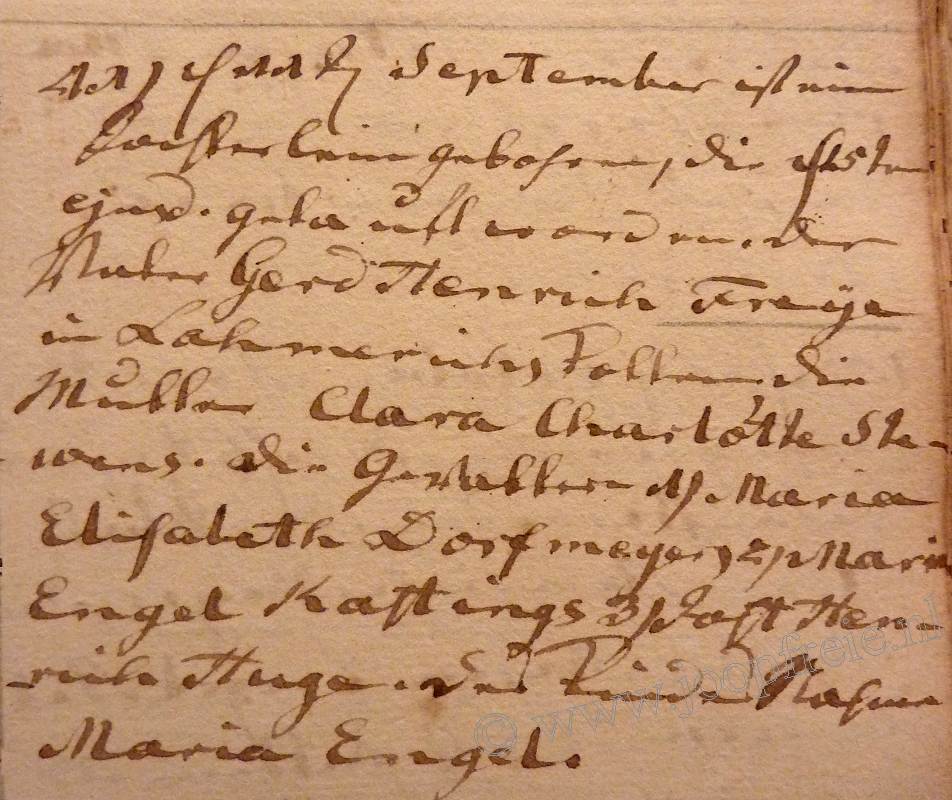 September ist ein
Tochterlein gebohren, die
ejusd. getauft worden. der
Vater Gerd Henrich Freye
in Lahmerichs Kotten die
Mutter Clara Charlotte Ste-
wens. die Gevattern 1) Maria
Elisabeth Dorfmeyers 2) Maria
Engel Kastings 3) Jost Hen-
rich Huge. des Kindes Nahme
Maria Engel.
© www.joopfreie.nl